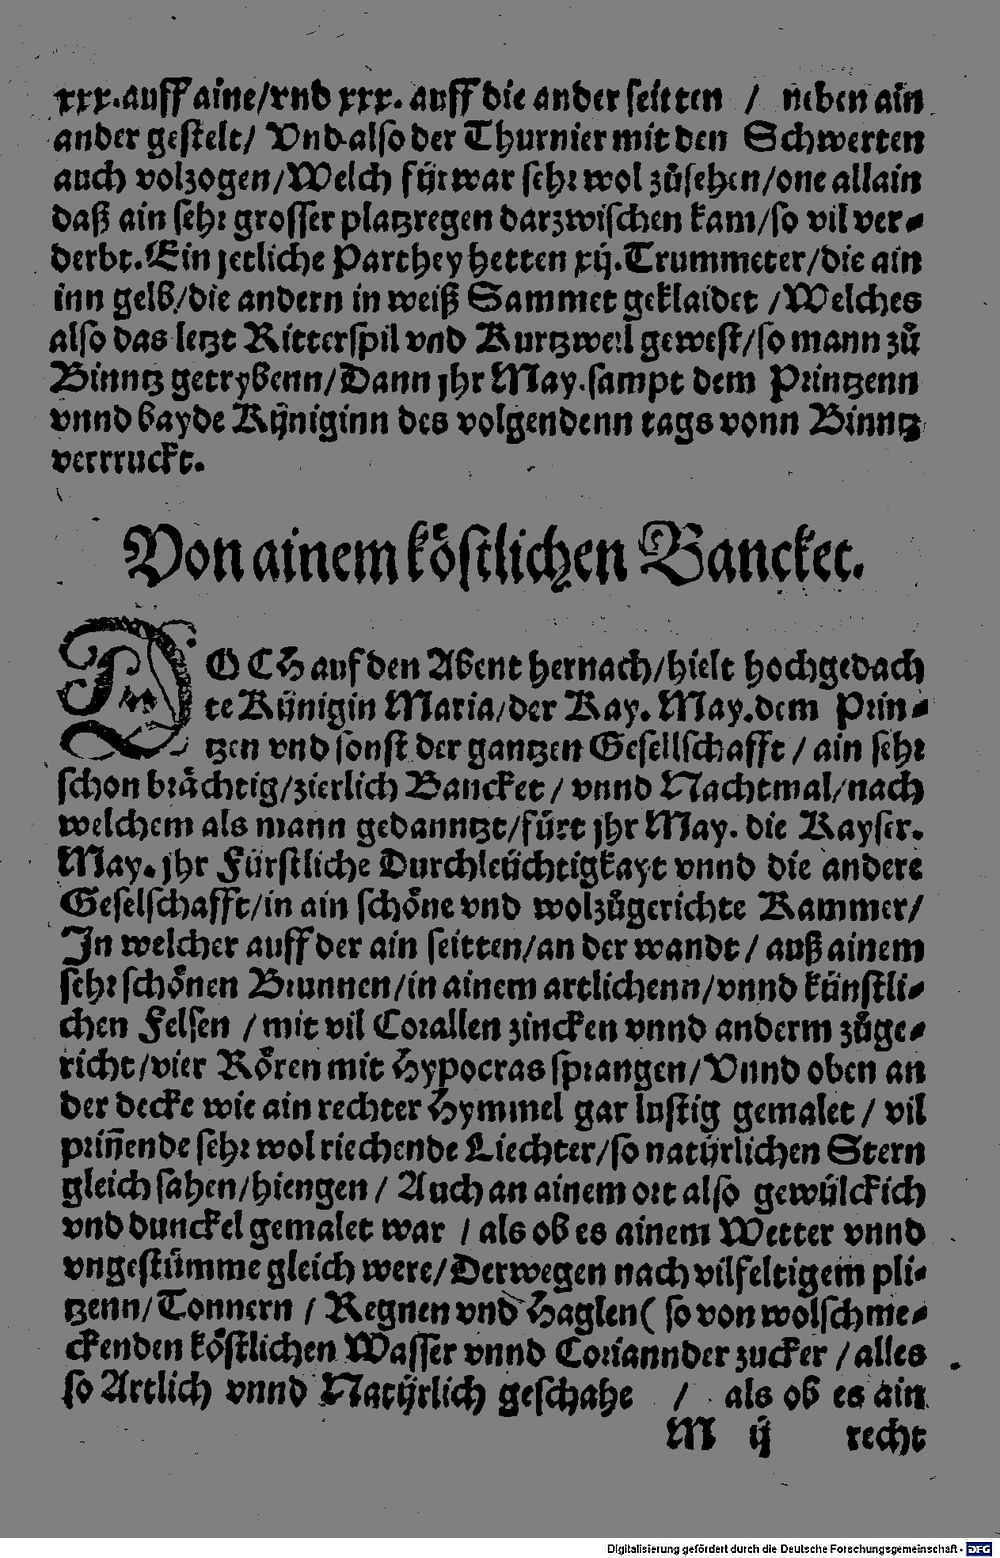 xxx. auff aine/vnd xxx. auff die ander seitten / neben ain
ander gestelt/ Vnd also der Thurnier mit den Schwerten
auch volzogen/Welch fürwar sehr wol zůsehen/one allain
daß ain sehr grosser platzregen darzwischen kam/so vil ver⸗
derbt. Ein jetliche Parthey hetten xij. Trummeter/die ain
inn gelb/die andern in weiß Sammet geklaidet /Welches
also das letzt Ritterspil vnd Kurtzweil gewest/so mann zů
Binntz getrybenn/Dann jhr May. sampt dem Printzenn
vnnd bayde Küniginn des volgendenn tags vonn Binntz
verrruckt.
Von ainem köstlichen Bancket.
DOCH auf den Abent hernach/hielt hochgedach
te Künigin Maria/der Kay. May. dem Prin⸗
tzen vnd sonst der gantzen Gesellschafft / ain sehr
schon brächtig/zierlich Bancket / vnnd Nachtmal/nach
welchem als mann gedanntzt/fürt jhr May. die Kayser.
May. jhr Fürstliche Durchleüchtigkayt vnnd die andere
Geselschafft/in ain schöne vnd wolzůgerichte Kammer/
In welcher auff der ain seitten/an der wandt / auß ainem
sehr schönen Brunnen/in ainem artlichenn/vnnd künstli⸗
chen Felsen /mit vil Corallen zincken vnnd anderm zůge⸗
richt/vier Rören mit Hypocras sprangen/Vnnd oben an
der decke wie ain rechter Hymmel gar lustig gemalet / vil
prin̄ende sehr wol riechende Liechter/so natürlichen Stern
gleich sahen/hiengen / Auch an ainem ort also gewülckich
vnd dunckel gemalet war / als ob es ainem Wetter vnnd
vngestümme gleich were/Derwegen nach vilfeltigem pli⸗
tzenn/Tonnern / Regnen vnd Haglen( so von wolschme⸗
ckenden köstlichen Wasser vnnd Coriannder zucker /alles
so Artlich vnnd Natürlich geschahe / als ob es ain
M ij recht
Digitalisierung gefördert durch die Deutsche Forschungsgemeinschaft - DFG